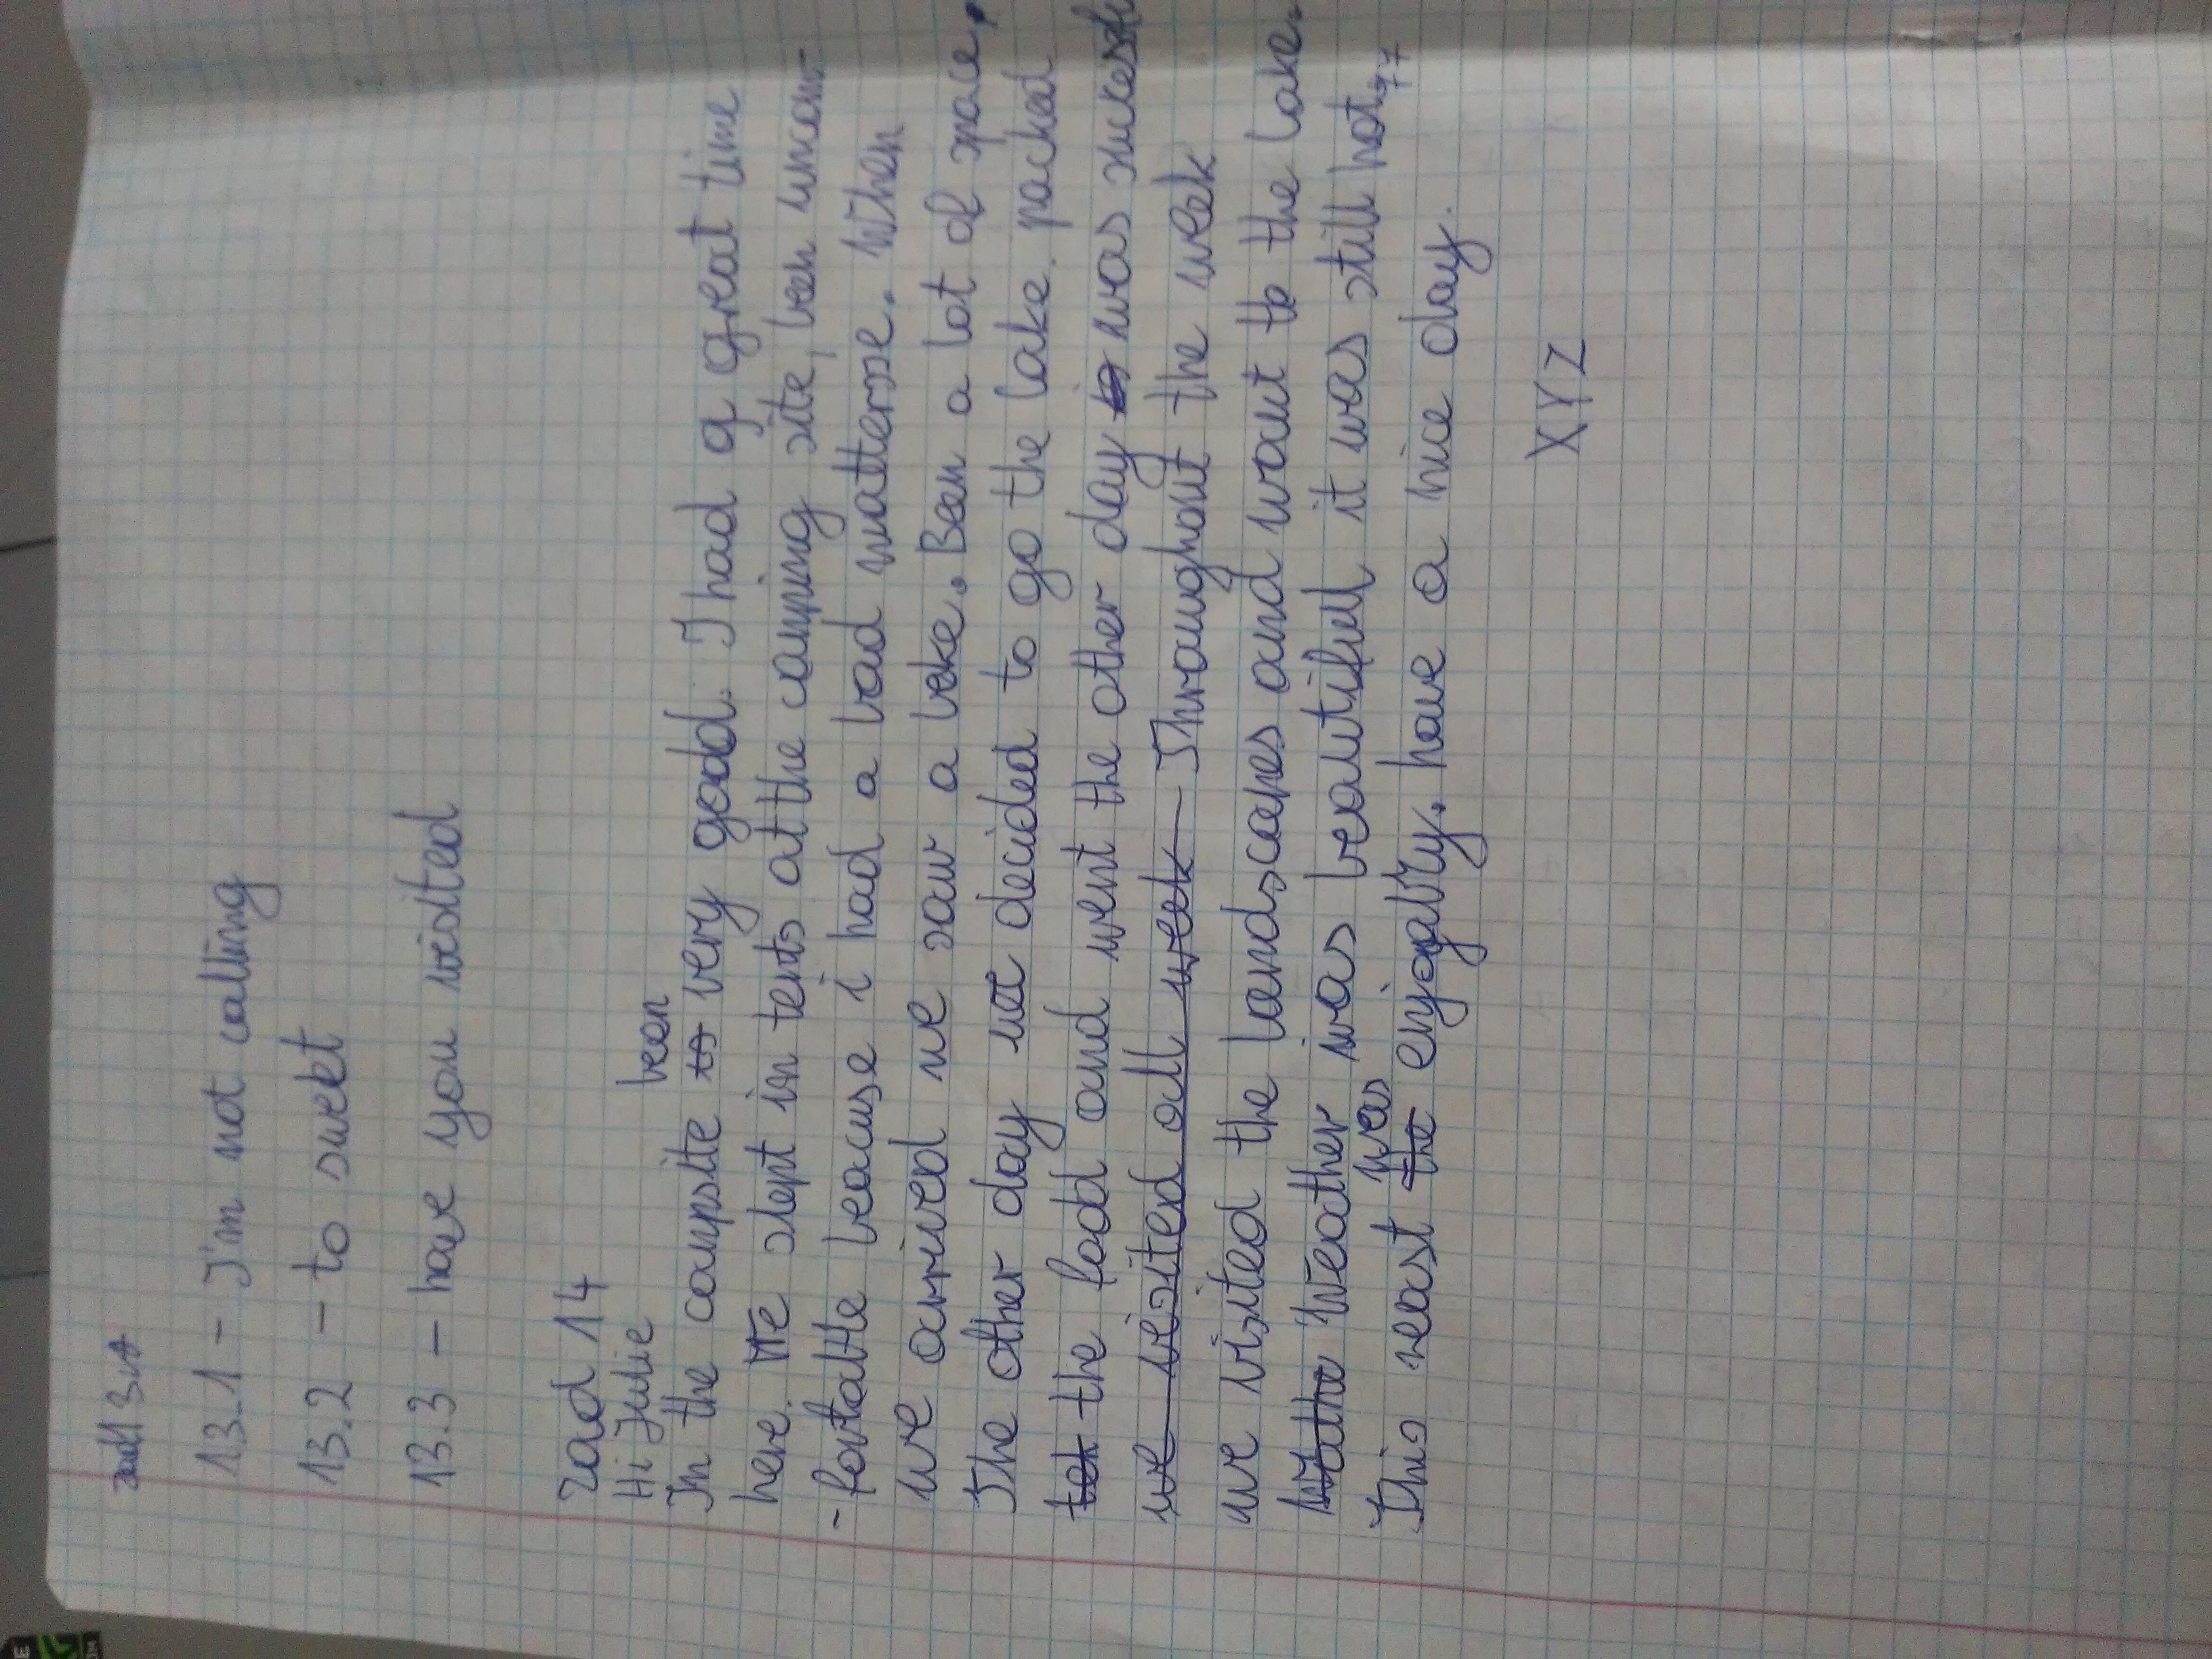 13.1 - I'm not calling
13.2 - to swekt
13.3 - have you visited
zad 14
Hi Julie
been
In the campsite very godd. I had a great time
here. We slept in tents at the camping site, been uncom-
-fortable beacuse i had a bad matterse. When
we arrived we saw a leke. Been a lot of space,
The other day we decided to go the lake. packed
the fodd and went the other day was
we visited all week Throughout the week
we visited the landscapes and want to the lake.
Weather was beautiful it was still hot,
was
This reast the enjoyalry. have a nice day.
XYZ